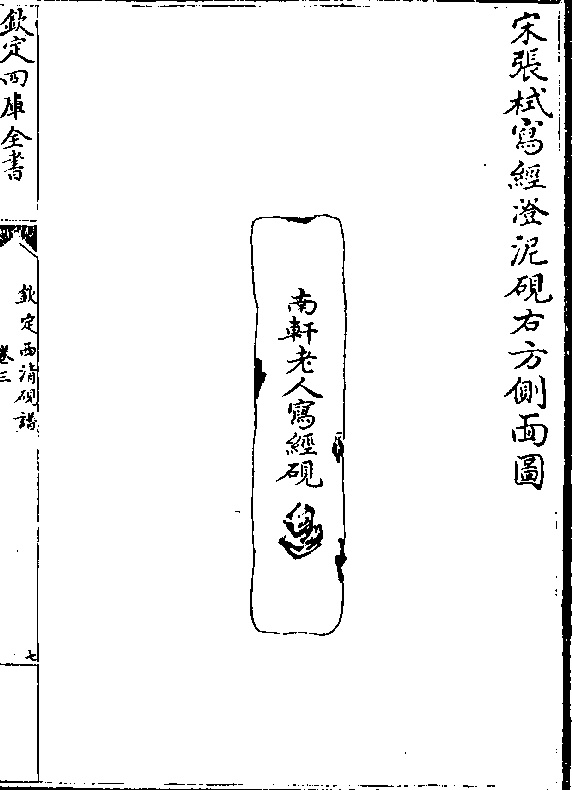 宋張栻寫經澄泥硯右方側面圖
南軒老人寫經硯
欽定四庫全書
欽定西清硯譜
卷三
七